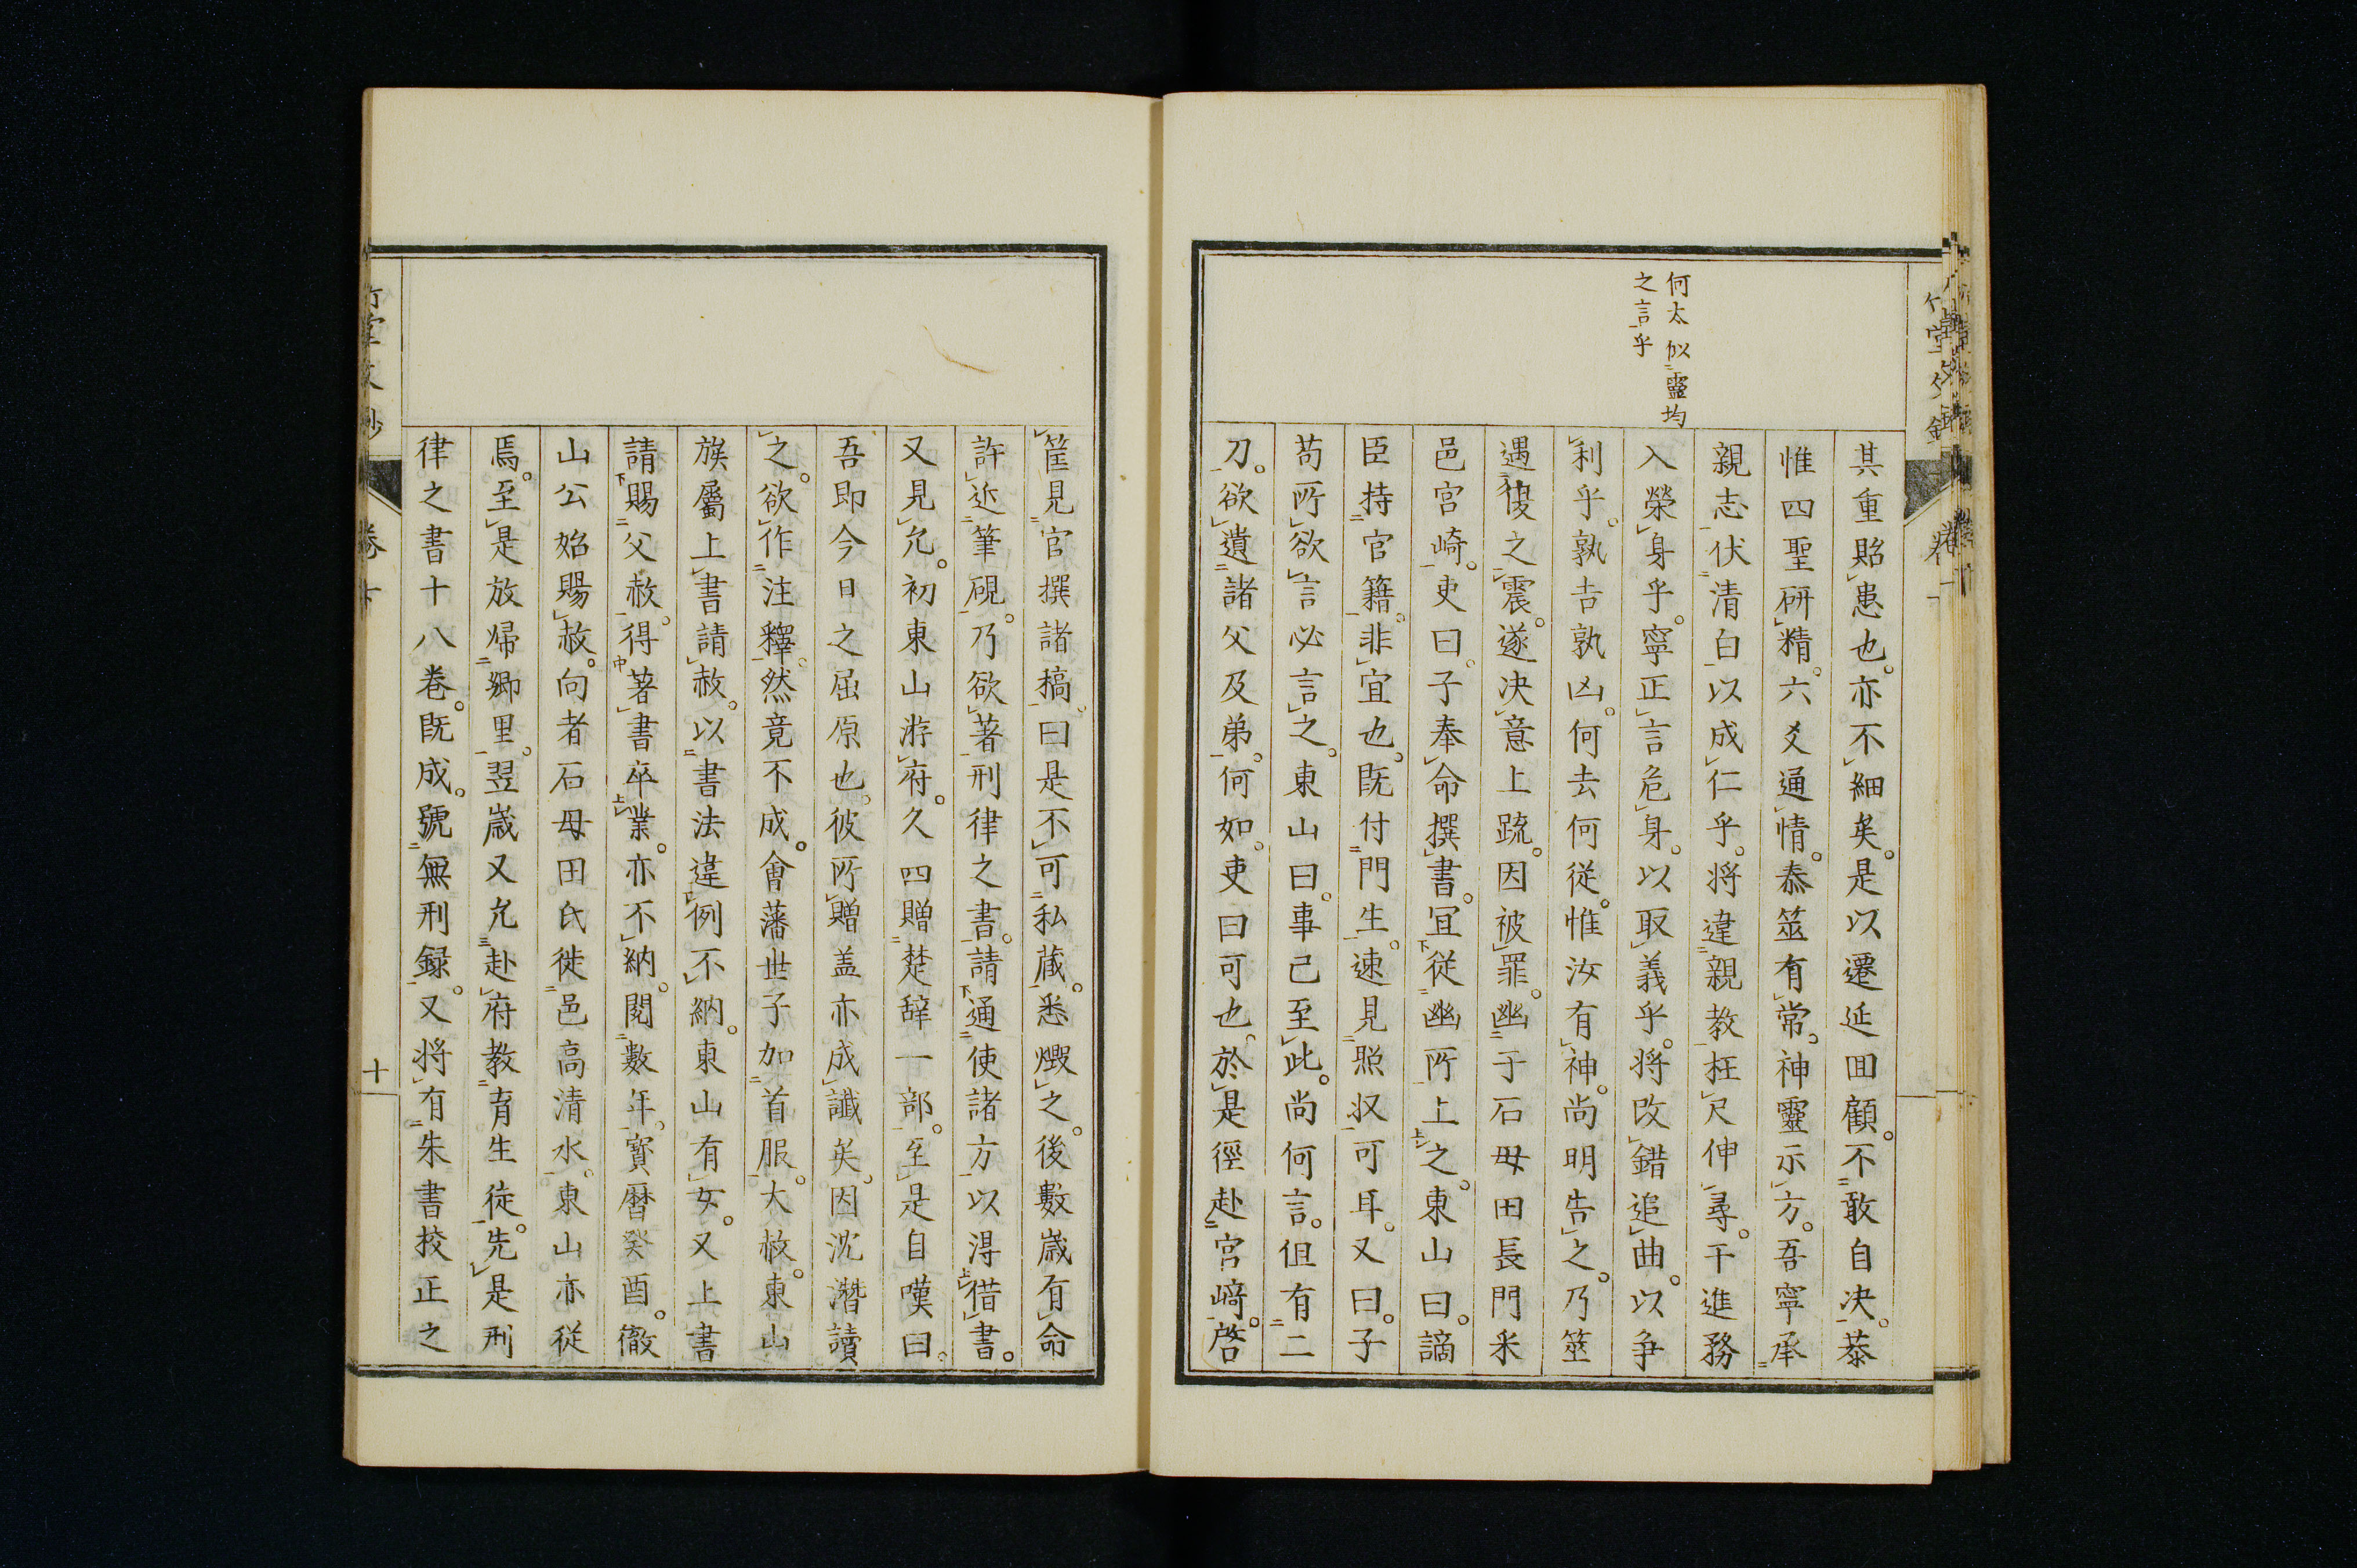 何太似靈均
之言乎
其重貽患也。亦不細矣。是以遷延回顧。不敢自决。恭
惟四聖研精。六爻通情。泰筮有常。神靈示方。吾寧承
親志伏清白以成仁乎。将違親教枉尺伸尋。干進務
入榮身乎。寧正言危身。以取義乎。将改錯追曲。以争
利乎。孰吉孰凶。何去何從。惟汝有神。尚明告之。乃筮
遇復之震。遂决意上疏。因被罪。幽于石母田長門采
邑宮崎。吏曰。子奉命撰書。冝從幽所上之。東山曰。謫
臣持官籍。非宜也。既付門生。速見照収可耳。又曰。子
苟所欲言必言之。東山曰。事已至此。尚何言。但有二
刀。欲遺諸父及弟。何如。吏曰可也。於是徑赴宮﨑。啓
筐見官撰諸稿。曰是不可私藏。悉燬之。後數歳有命
許近筆硯。乃欲著刑律之書。請通使諸方以得借書。
又見允。初東山游府。久四贈楚辞一部。至是自嘆曰。
吾即今日之屈原也。彼所贈盖亦成讖矣。因沈潛讀
之。欲作注釋。然竟不成。會藩世子加首服。大赦。東山
族屬上書請赦。以書法違例不納。東山有女。又上書
請賜父赦。得著書卒業。亦不納。閲數年。寳暦癸酉。徹
山公始賜赦。向者石母田氏徙邑高清水。東山亦從
焉。至是放帰郷里。翌歳又允赴府教育生徒。先是刑
律之書十八卷。既成。號無刑録。又将有朱書挍正之
竹堂文鈔
卷
十